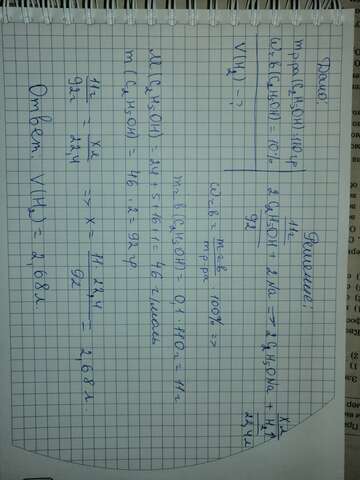 Дано:
m р-ра(C₂H₅OH)=110гр
ω в-ва(C₂H₅OH)=10%
V(H₂) - ?
Решение:
11г xл
2C₂H₅OH + 2Na => 2C₂H₅ONa + H₂↑
92 22,4л
ω в-ва = m в-ва / m р-ра · 100% =>
m в-ва(C₂H₅OH) = 0,1 · 110г = 11г
M(C₂H₅OH) = 24+5+16+1=46 г/моль
m(C₂H₅OH) = 46 · 2 = 92гр
11г / 92г = xл / 22,4 => x = 11·22,4 / 92 = 2,68л
Ответ: V(H₂) = 2,68л